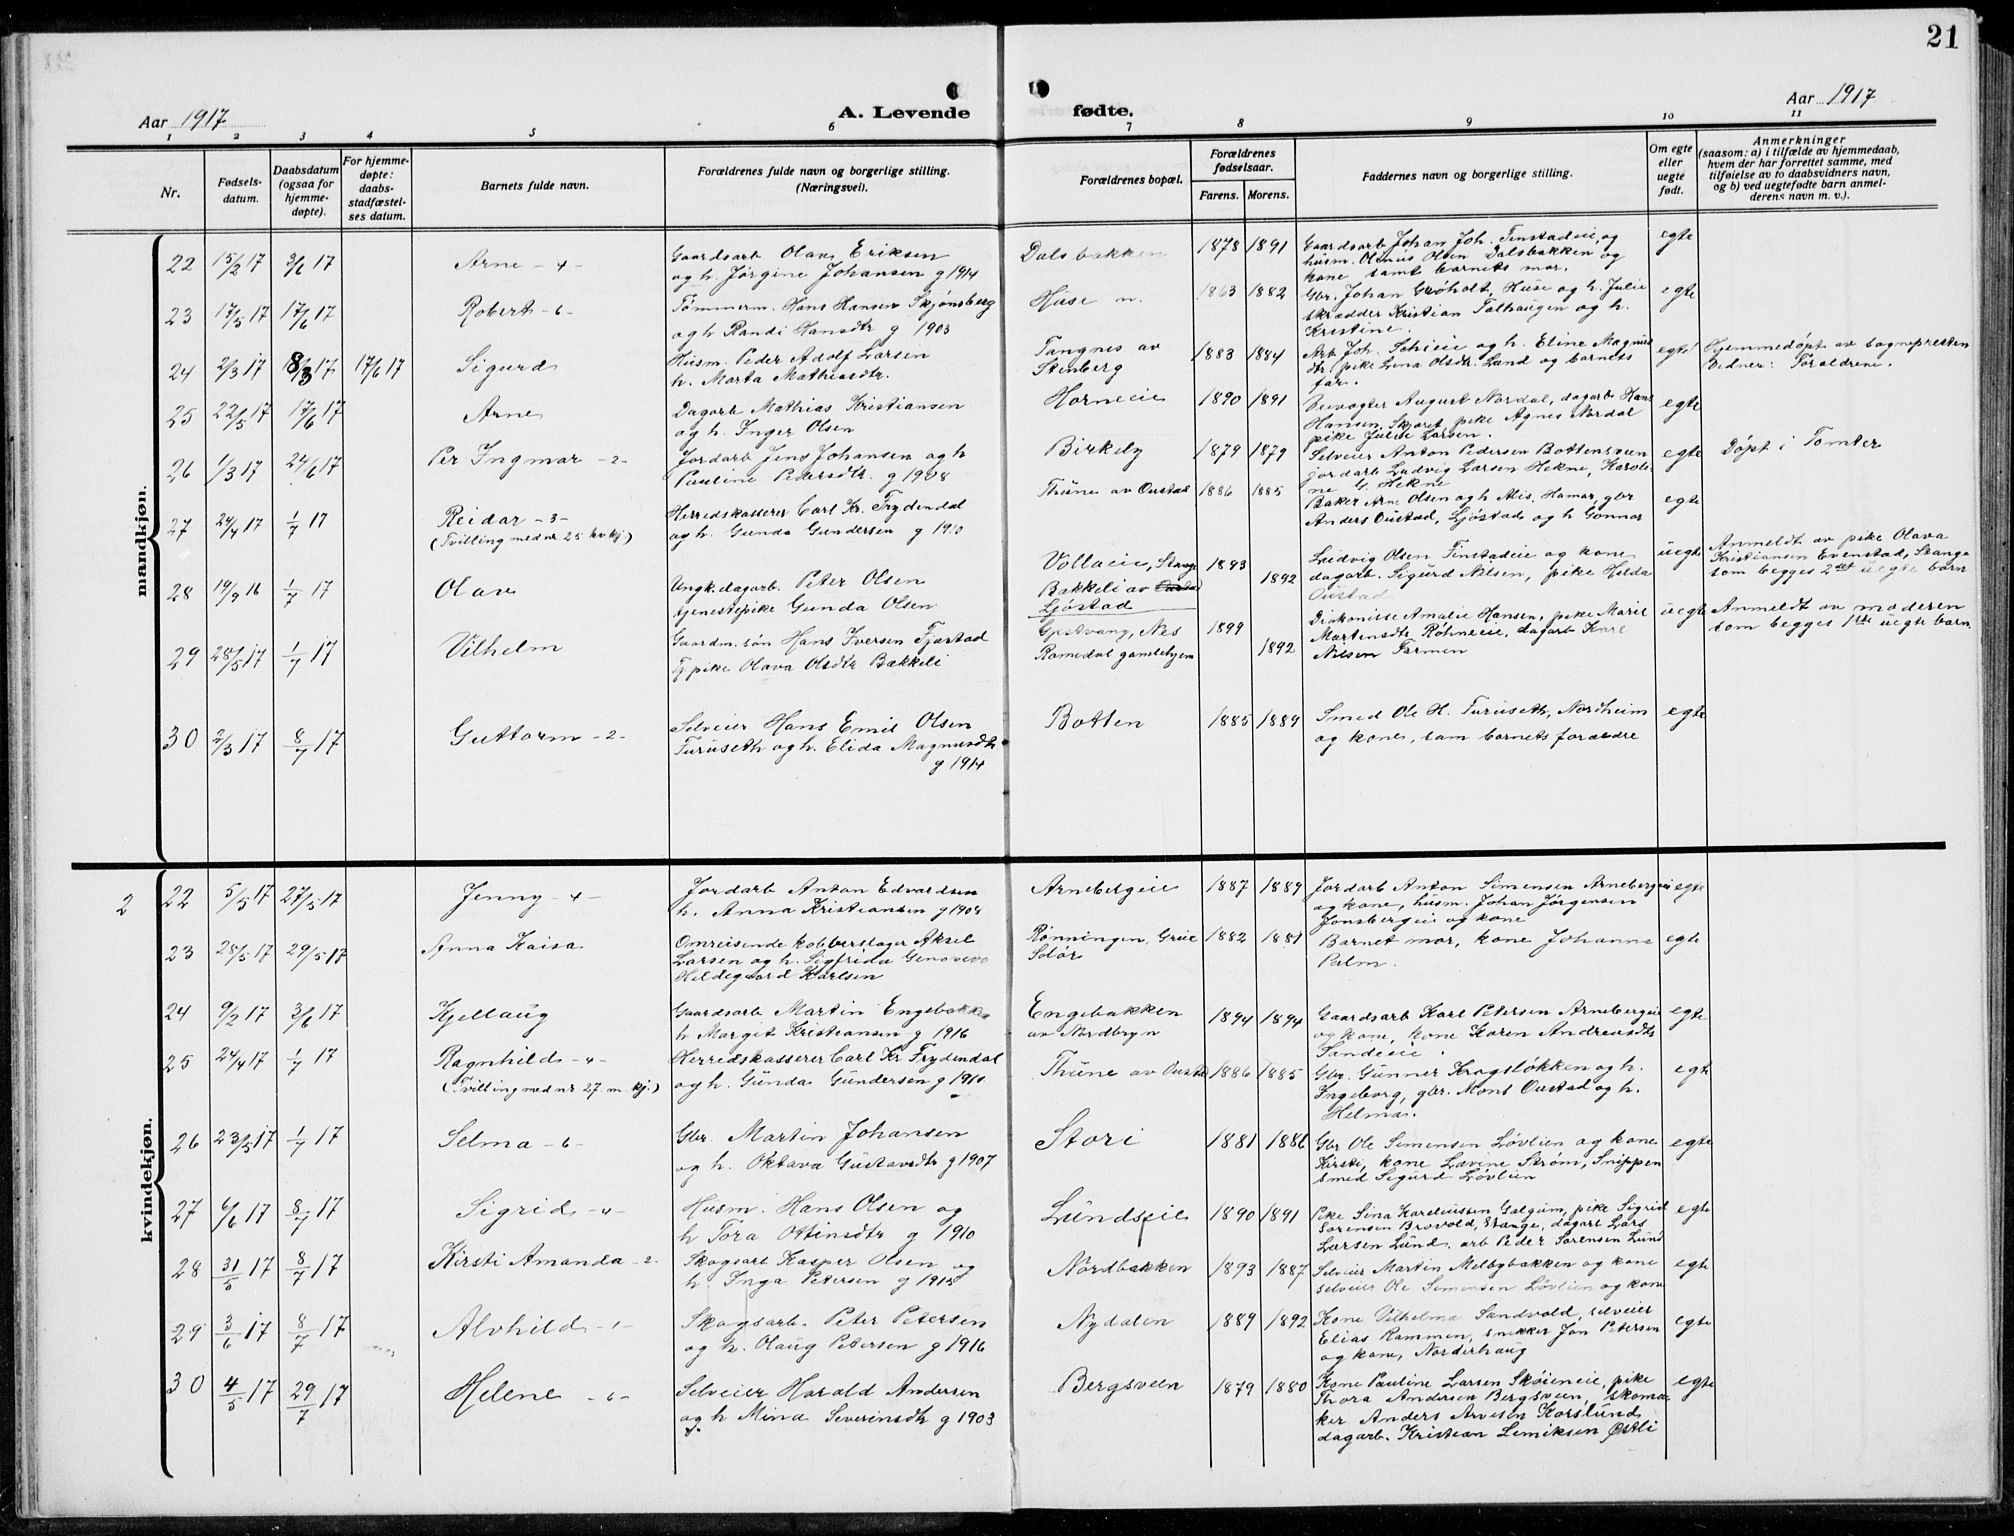 21
Aar 1917
A. Levende fødte.
Aar 1917
1 2 3 4 5 6 7 8 9 10 11
Nr.
Fødsels-
datum.
Daabsdatum
(ogsaa for
hjemme-
døpte).
For hjemme-
døpte:
daabs-
stadfæstel-
ses datum.
Barnets fulde navn.
Forældrenes fulde navn og borgerlige stilling.
(Næringsvei).
Forældrenes bopæl.
Forældrenes
fødselsaar.
Farens. Morens.
Faddernes navn og borgerlige stilling.
Om egte
eller
uegte
født.
Anmerkninger
(saasom: a) i tilfælde av hjemmedaab,
hvem der har forrettet samme, med
tilføielse av to daabsvidners navn,
og b) ved uegtefødte barn anmel-
derens navn m. v.).
mandkjøn.
22 15/2 17 3/6 17 Arne - 4 - Gaardsarb Olav Eriksen
og h. Jørgine Johansen g 1914
Dalsbakken 1878 1891 Gaardsarb Johan Joh. Finstadeie, og
husm. Olinus Olsen Dalsbakken og
kone samt barnets mor.
egte
23 17/5 17 17/6 17 Robert - 6 - Tømmerm. Hans Hansen Skjønsberg
og h Randi Hansdtr g 1903
Huse n. 1863 1882 Gbr. Johan Grøholt, Huse og h. Julie
skrædder Kristian Talhaugen og h.
Kristine.
egte
24 2/3 17 8/3 17 17/6 17 Sigurd Husm. Peder Adolf Larsen
h. Marta Mathiasdtr.
Tangnes av
Stenberg
1883 1884 Arb Joh. Schieie og h. Eline Magnus
dtr, pike Lina Olsdtr. Lund og barnets
far.
egte Hjemmedøpt av sognepresten
Vidner: Forældrene.
25 22/5 17 17/6 17 Arne Dagarb Mathias Kristiansen
og h. Inger Olsen
Horneeie 1890 1891 August Nordal, dagarb Hans
Hansen Skjøret, pike Agnes Nordal
pike Julie Larsen.
egte
26 1/3 17 24/6 17 Per Ingmar - 2 - Jordarb Jens Johansen og h
Pauline Pedersdtr. g 1908
Birkely 1879 1879 Selveier Anton Pedersen Bottensveen
jordarb Ludvig Larsen Hekne, Karoli
ne G. Hekne
egte Døpt i Tomter
27 24/4 17 1/7 17 Reidar - 3 -
(Tvilling med nr 25 kv kj.)
Herredskasserer Carl Kr. Frydendal
og h. Gunda Gundersen g 1910
Thune av Oustad 1886 1885 Baker Arne Olsen og h Alis, Hamar, gbr
Anders Oustad, Ljøstad og h Gonnor
egte
28 19/9 16 1/7 17 Olav Ungk. dagarb. Peter Olsen
tjenestepike Gunda Olsen
Vollaeie, Stange 1893
Bakkeli av
Ljøstad 1892
Ludvig Olsen Finstadeie og kone
dagarb. Sigurd Nilsen, pike Hilda
Oustad
uegte Anmeldt av pike Olava
Kristiansen Evenstad, Stange
som begges 2det uegte barn
29 28/5 17 1/7 17 Vilhelm Gaardm. søn Hans Iversen Fjæstad
Tj pike Olava Olsdtr Bakkeli
Nes 1899
Romedal gamlehjem 1892
Diakonisse Amalie Hansen, pike Marie
Martinsdtr Røhneeie, dagarb Karl
Nilsen Farmen
uegte Anmeldt av moderen
som begges 1ste uegte barn.
30 2/3 17 8/7 17 Guttorm - 2 - Selveier Hans Emil Olsen
Furuseth og h. Elida Magnusdtr
g 1914
Botten 1885 1889 Smed Ole H. Furuseth, Nordheim
og kone, sam barnets forældre
egte
kvindekjøn.
2
22 5/5 17 27/5 17 Jenny - 4 - Jordarb Anton Edvardsen
h. Anna Kristiansen g 1908
Arnebergeie 1887 1889 Jordarb Anton Simensen Arnebergeie
og kone, husm. Johan Jørgensen
Jonsbergeie og kone
egte
23 28/5 17 29/5 17 Anna Kaisa Omreisende kobberslager Aksel
Larsen og h. Sigfrida Genoveva
Hildegaard Karlsen
Rønningen, Grue
Solør
1882 1881 Barnet mor, kone Johanna
Palm.
egte
24 9/2 17 3/6 17 Kjellaug Gaardsarb Martin Engebakken
h Margit Kristiansen g 1916
Engebakken
av Nordbryn
1894 1894 Gaardsarb Karl Petersen Arnebergeie
og kone, kone Karen Andreasdtr
Sandeeie.
egte
25 24/4 17 1/7 17 Ragnhild - 4 -
(Tvilling med nr 27 m. kj.)
Herredskasserer Carl Kr Frydendal
og h. Gunda Gundersen g 1910
Thune av Oustad 1886 1885 Gbr. Gunner Krogsløkken og h.
Ingeborg, gbr. Mons Oustad og h.
Helma.
egte
26 23/5 17 1/7 17 Selma - 6 - Gbr. Martin Johansen
og h. Oktava Gustavsdtr g 1907
Stori 1881 1886 Gbr Ole Simensen Løvlien og kone
Kirsti, kone Lovine Strøm, Snippen
smed Sigurd Løvlien
egte
27 6/6 17 8/7 17 Sigrid - 4 - Husm. Hans Olsen og
h Tora Ottinsdtr g 1910
Lundseie 1890 1891 Pike Sina Kareliussen Galgum, pike Sigrid
Sorensen Brovold, Stange, dagarb Lars
Larsen Lund, arb Peder Sorensen Lund
egte
28 31/5 17 8/7 17 Kirsti Amanda - 2 - Skogsarb Kasper Olsen og
h Inga Petersen g 1915
Nordbakken 1893 1887 Selveier Martin Melbybakken og kone
selveier Ole Simensen Løvlien og kone
egte
29 3/6 17 8/7 17 Alvhild - 1 - Skogsarb. Peter Petersen
og h. Olaug Petersen g 1916
Nydalen 1889 1892 Kone Vilhelma Sandvold, selveier
Elias Rammen, snekker Jon Petersen
og kone, Norderhaug
egte
30 4/5 17 29/7 17 Helene - 6 - Selveier Harald Andersen
og h Mina Severinsdtr g 1903
Bergsveen 1879 1880 Kone Pauline Larsen Skøieneie, pike
Thora Andersen Bergsveen, skoma
ker Anders Arvesen Korslund
dagarb. Kristian Lemiksen Østli
egte